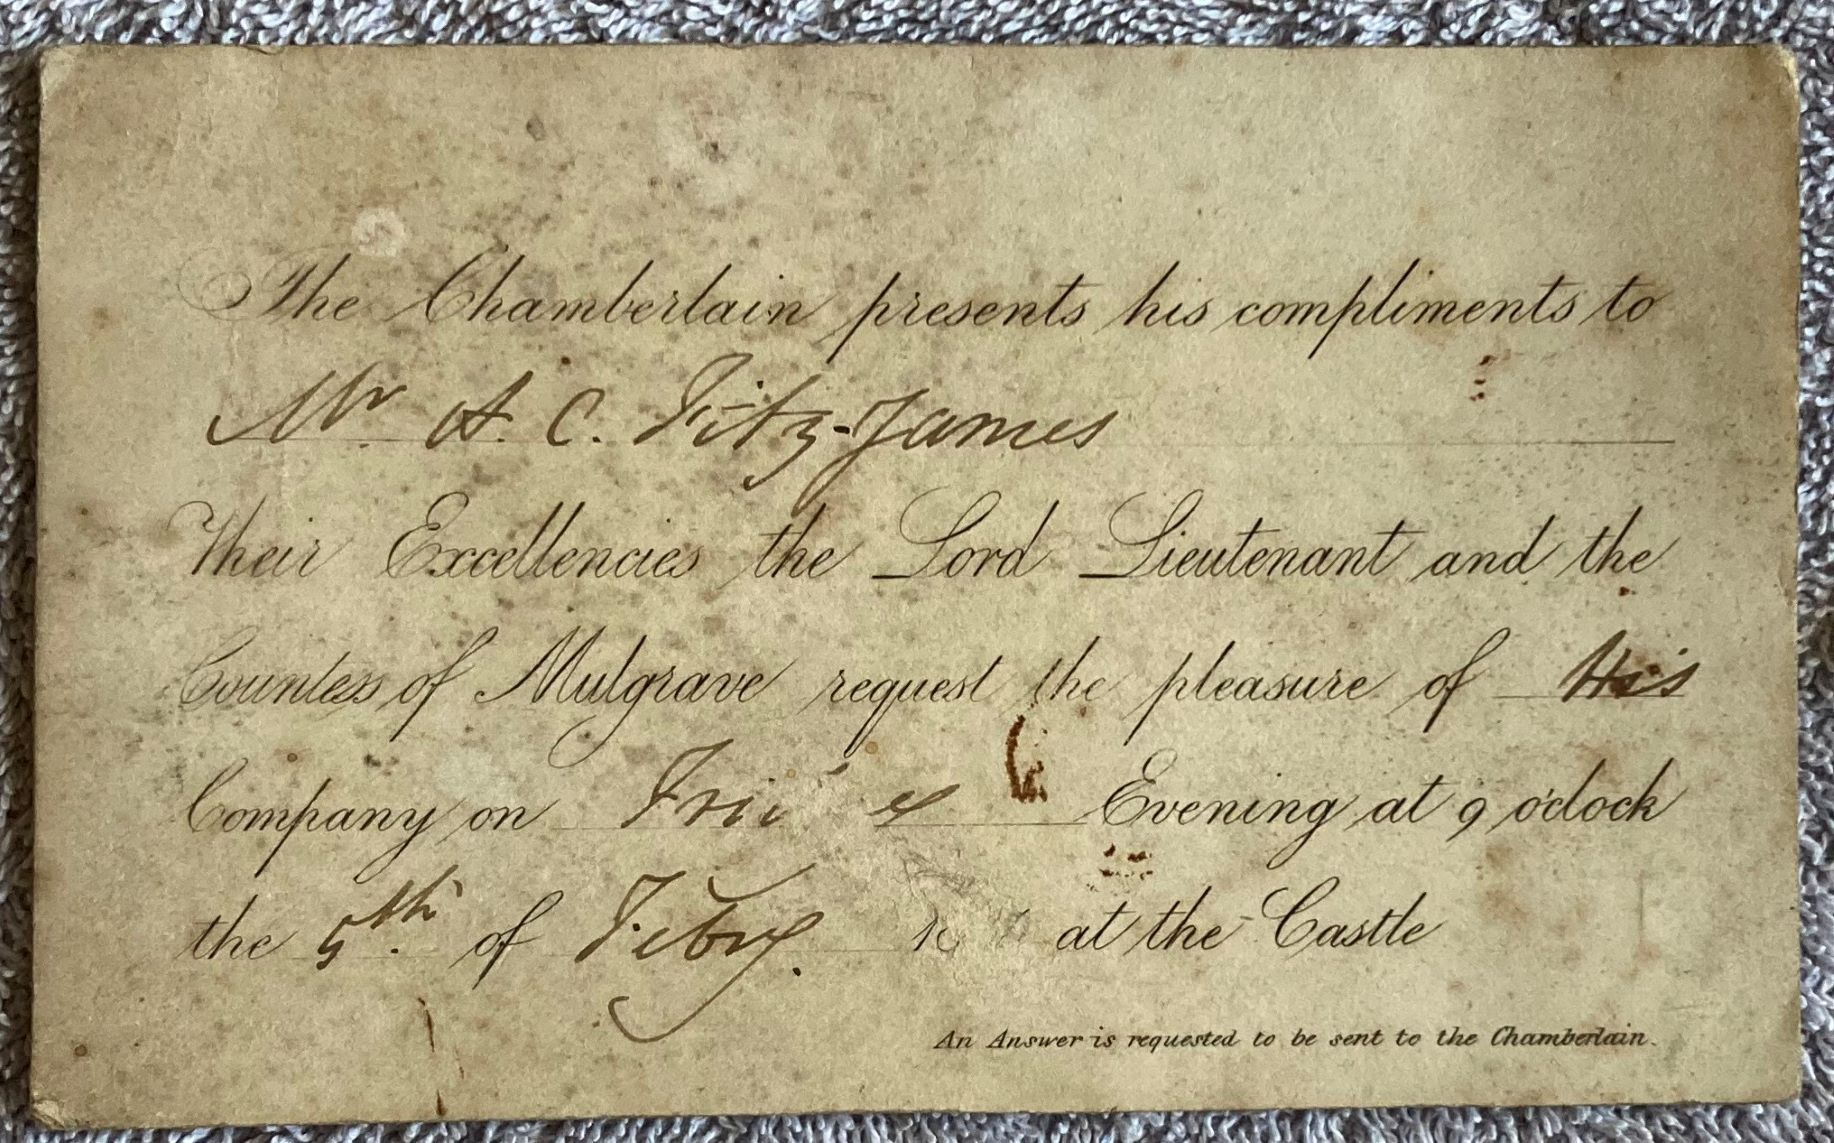 The Chamberlain presents his compliments to
Mr. A. C. Fitz-James
Their Excellencies the Lord Lieutenant and the
Countess of Mulgrave request the pleasure of His
Company on Evening at 9 o'clock
the 5th. of Feby. at the Castle
An Answer is requested to be sent to the Chamberlain.